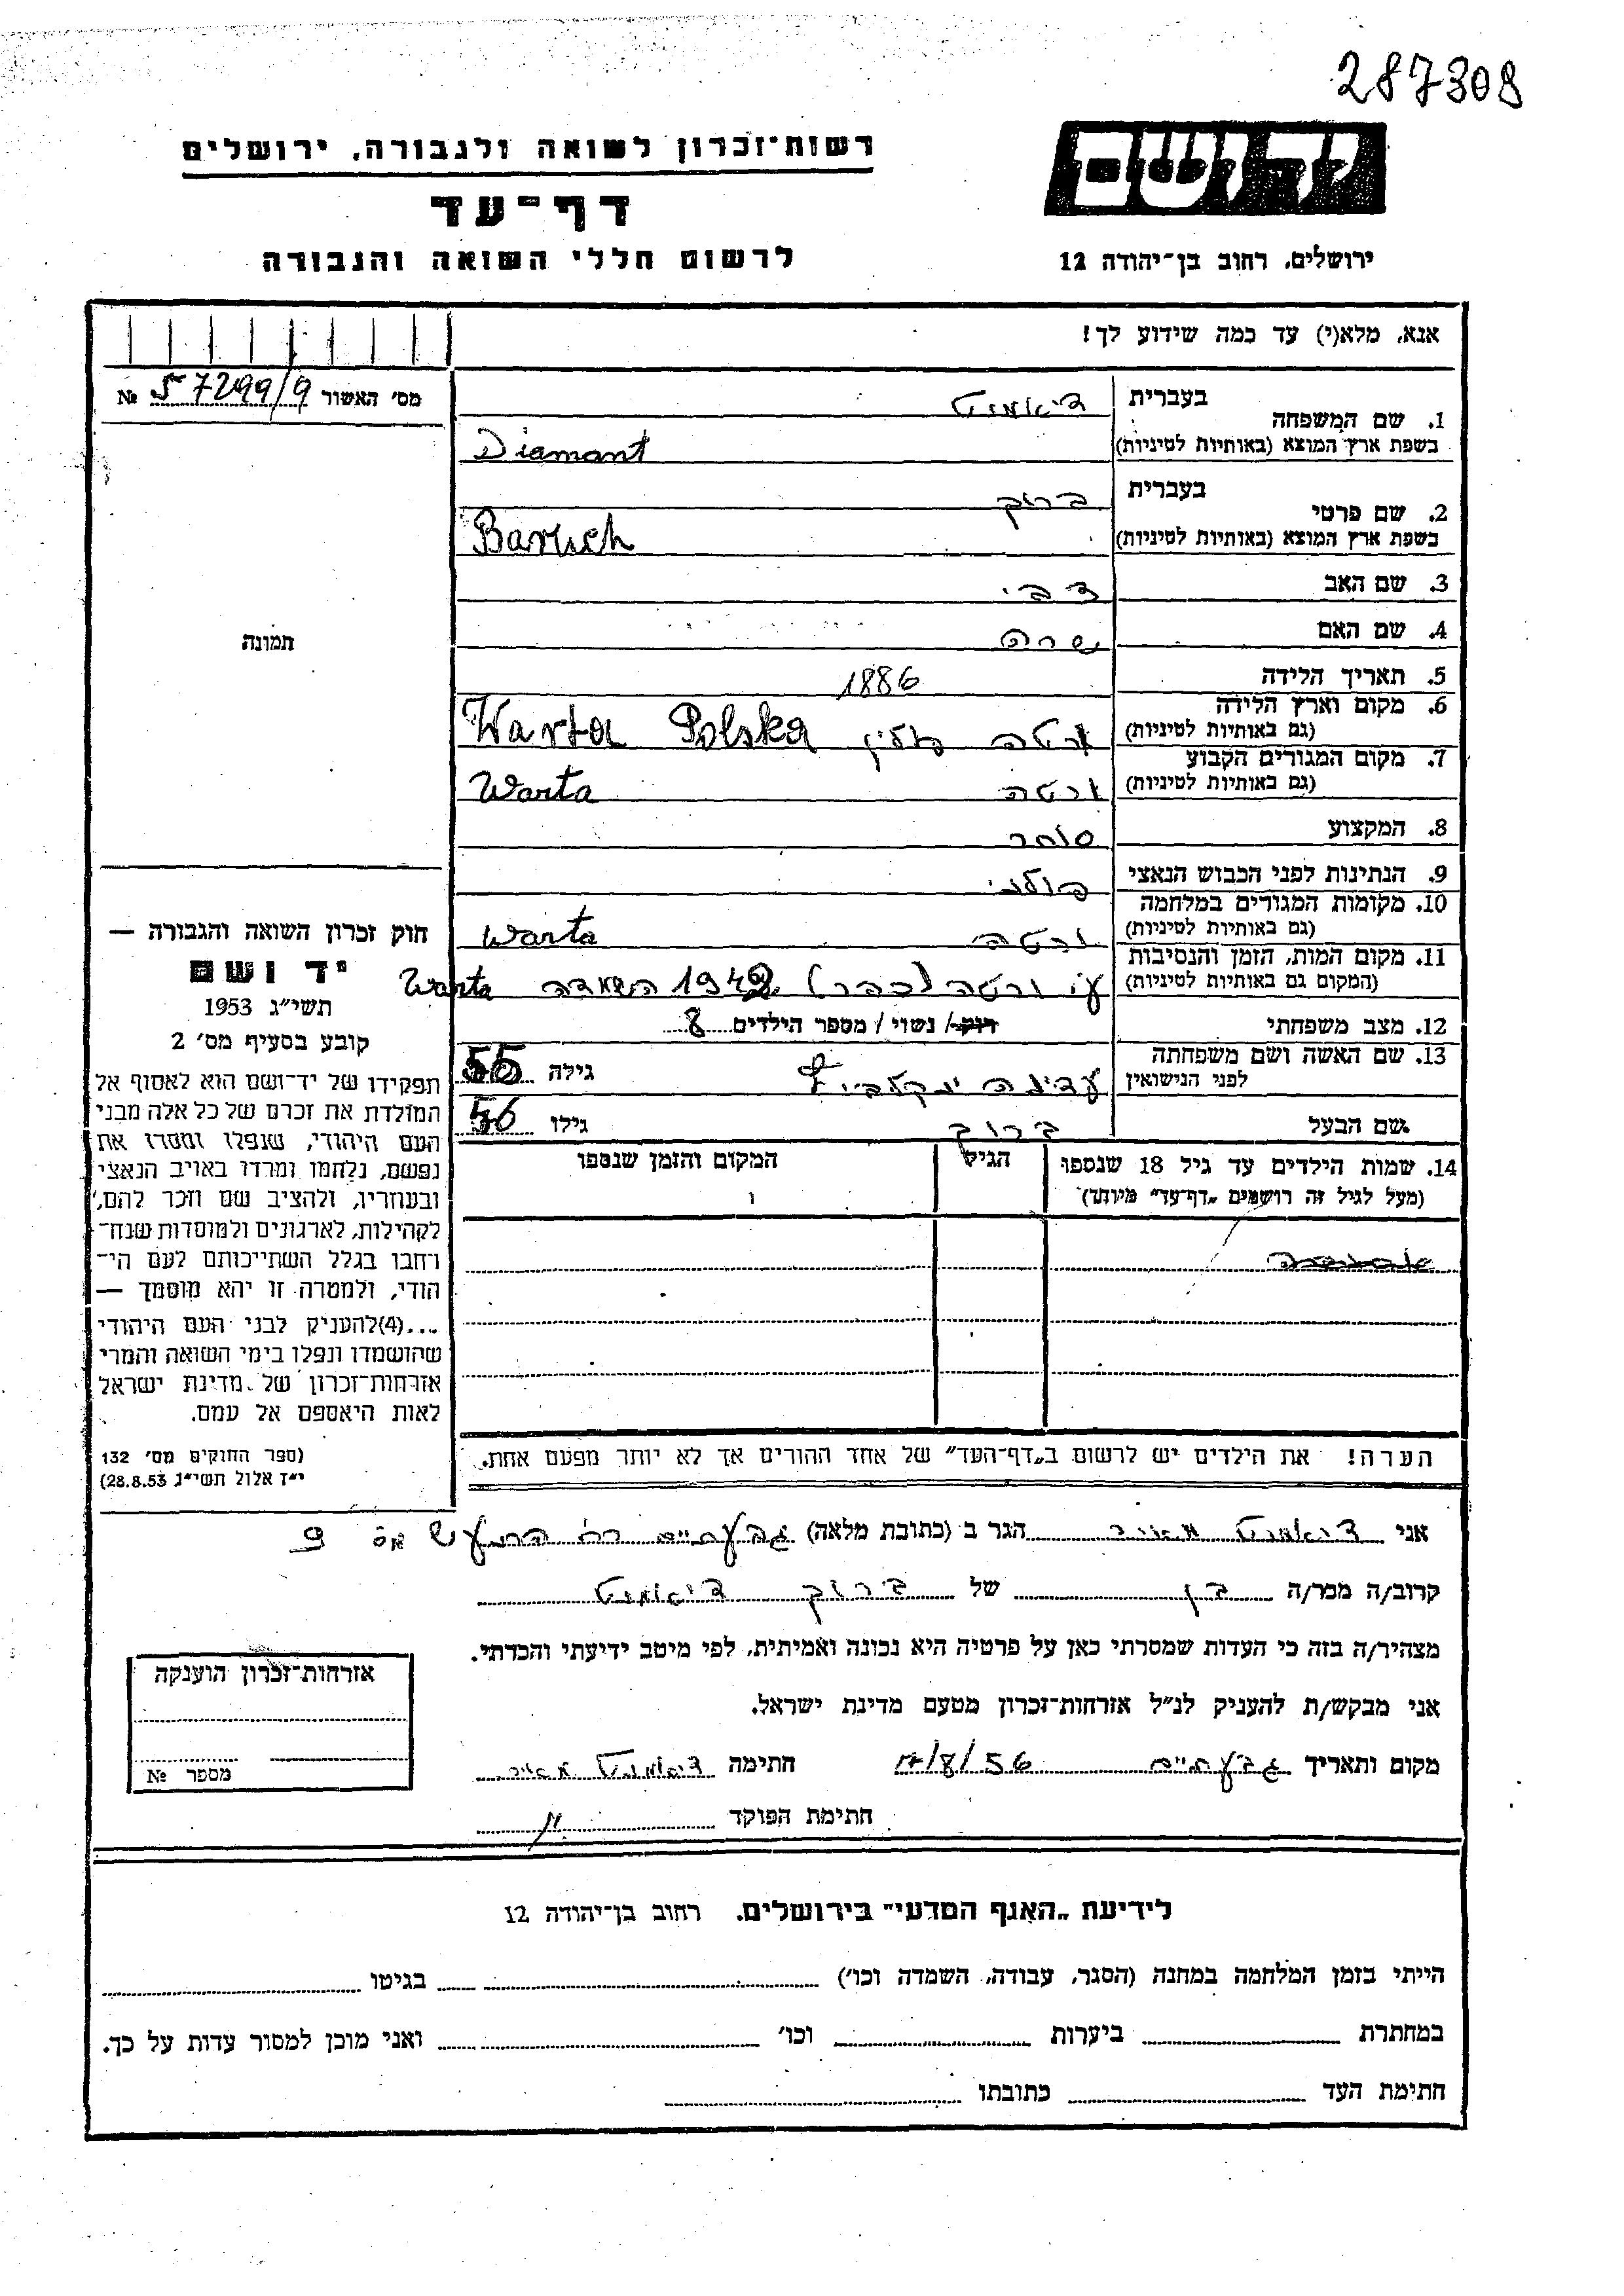 287308
יד ושם
ירושלים, רחוב בן־יהודה 12
רשות־זכרון לשואה ולגבורה, ירושלים
דף־עד
לרשום חללי השואה והגבורה
אנא, מלא(י) עד כמה שידוע לך!
מס׳ האשור 57299/9 №
תמונה
1. שם המשפחה בעברית דיאמנט
בשפת ארץ המוצא (באותיות לטיניות) Diamant
2. שם פרטי בעברית ברוך
בשפת ארץ המוצא (באותיות לטיניות) Baruch
3. שם האב צבי
4. שם האם שרה
5. תאריך הלידה 1886
6. מקום וארץ הלידה (גם באותיות לטיניות) ורטה פולין Warta Polska
7. מקום המגורים הקבוע (גם באותיות לטיניות) ורטה Warta
8. המקצוע סוחר
9. הנתינות לפני הכבוש הנאצי פולני
10. מקומות המגורים במלחמה (גם באותיות לטיניות) ורטה Warta
11. מקום המות, הזמן והנסיבות (המקום גם באותיות לטיניות) ע״י ורטה 1942 השמדה Warta
12. מצב משפחתי רוק/ נשוי / מספר הילדים 8
13. שם האשה ושם משפחתה לפני הנישואין עדינה גילה 55
שם הבעל ברוך גילו 56
14. שמות הילדים עד גיל 18 שנספו (מעל לגיל זה רושמים „דף־עד״ מיוחד) הגיל המקום והזמן שנספו
הערה! את הילדים יש לרשום ב„דף־העד״ של אחד ההורים אך לא יותר מפעם אחת.
חוק זכרון השואה והגבורה —
יד ושם
תשי״ג 1953
קובע בסעיף מס׳ 2
תפקידו של יד־ושם הוא לאסוף אל
המולדת את זכרם של כל אלה מבני
העם היהודי, שנפלו ומסרו את
נפשם, נלחמו ומרדו באויב הנאצי
ובעוזריו, ולהציב שם וזכר להם,
לקהילות, לארגונים ולמוסדות שנח־
רחבו בגלל השתייכותם לעם הי־
הודי, ולמטרה זו יהא מוסמך —
...(4)להעניק לבני העם היהודי
שהושמדו ונפלו בימי השואה והמרי
אזרחות־זכרון של מדינת ישראל
לאות היאספם אל עמם.
(ספר החוקים מס׳ 132
י״ז אלול תשי״ג 28.8.53)
אני דיאמנט מאיר הגר ב (כתובת מלאה) גבעתיים רח׳ המעש מס 9
קרוב/ה מכר/ה בן של ברוך דיאמנט
מצהיר/ה בזה כי העדות שמסרתי כאן על פרטיה היא נכונה ואמיתית, לפי מיטב ידיעתי והכרתי.
אני מבקש/ת להעניק לנ״ל אזרחות־זכרון מטעם מדינת ישראל.
מקום ותאריך גבעתיים 17/8/56 חתימה דיאמנט מאיר
חתימת הפוקד
אזרחות־זכרון הוענקה
מספר №
לידיעת „האגף המדעי״ בירושלים. רחוב בן־יהודה 12
הייתי בזמן המלחמה במחנה (הסגר, עבודה, השמדה וכו׳) בגיטו
במחתרת ביערות וכו׳ ואני מוכן למסור עדות על כך.
חתימת העד כתובתו